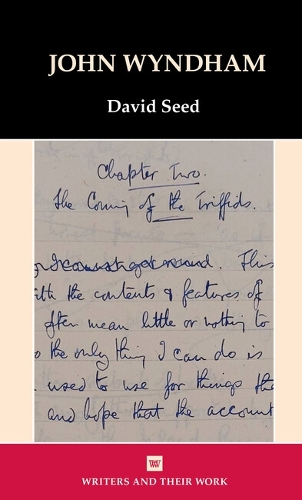 JOHN WYNDHAM
David Seed
Chapter Two.
The Coming of the Triffids.
This
ith the contents & features of
often mean little or nothing to
o the only thing I can do is
used to use for things tha
and hope that the account
WRITERS AND THEIR WORK